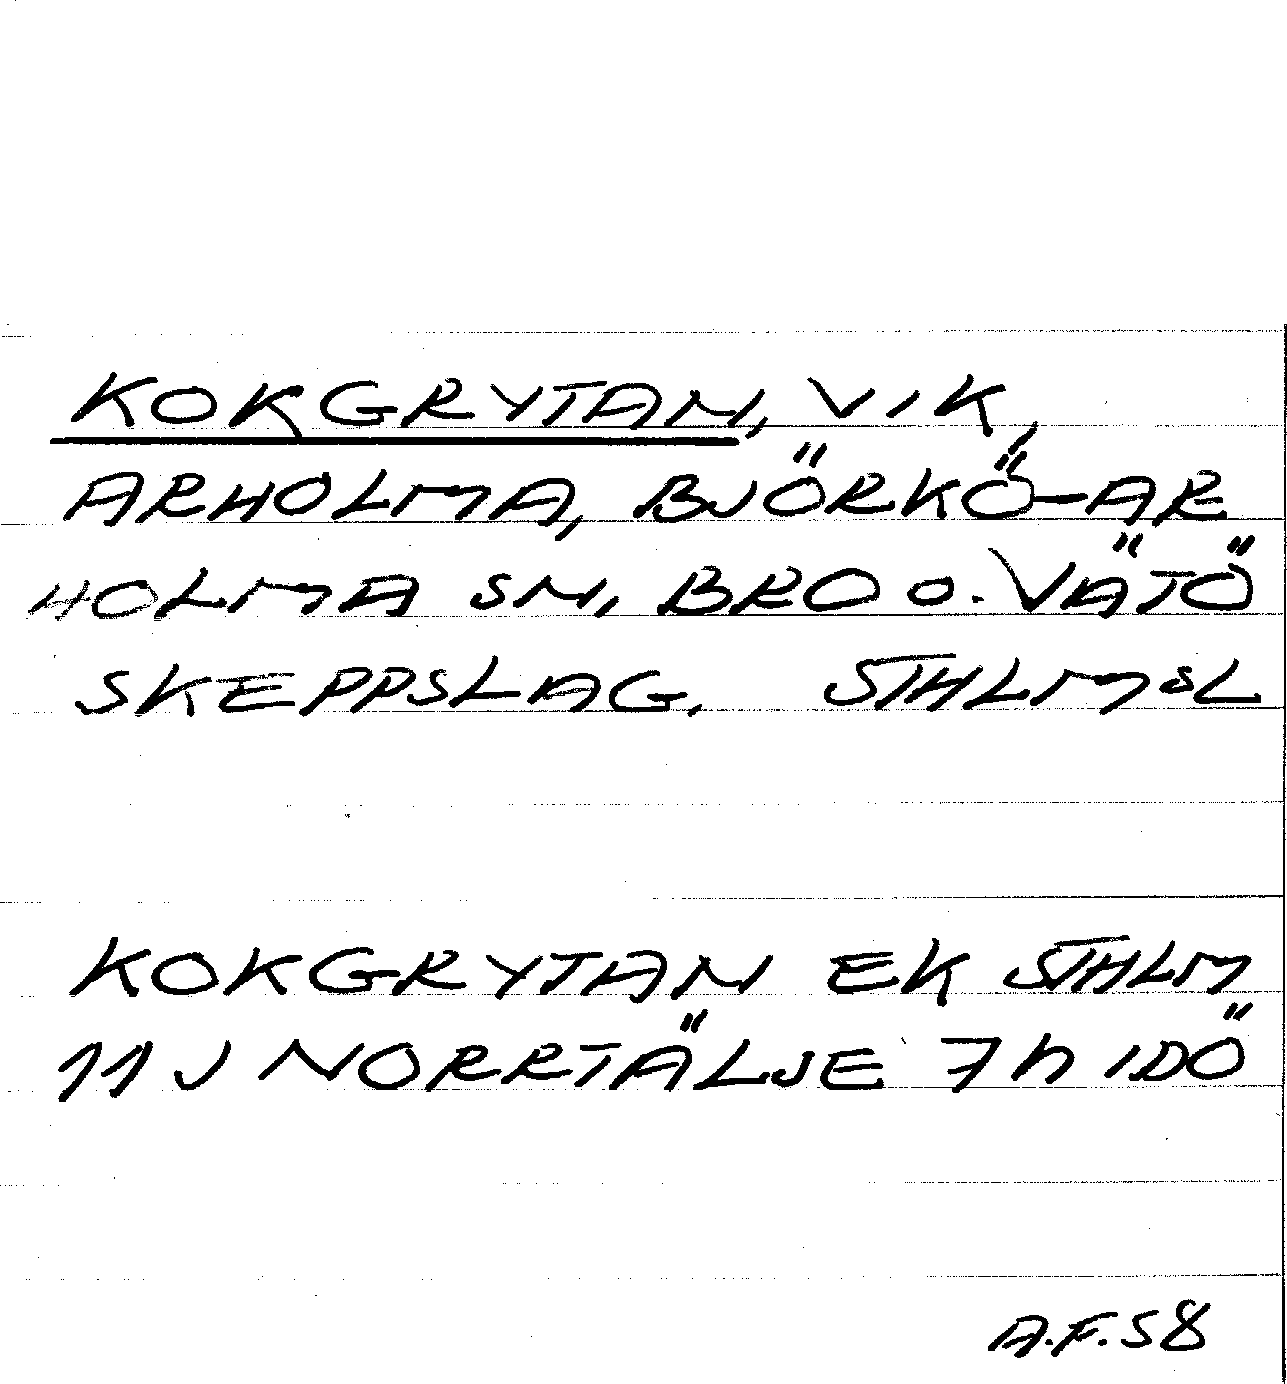 KOKGRYTAN, VIK,
ARHOLMA, BJÖRKÖ-AR
HOLMA SN, BRO O. VÄTÖ
SKEPPSLAG, STHLMSL
KOKGRYTAN EK STHLM
11 J NORRTÄLJE 7 h IDÖ
A.F. 58